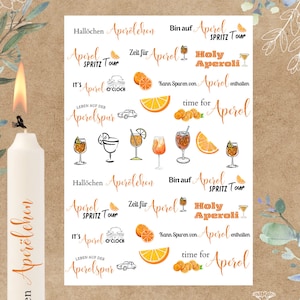 Hallöchen Aperölchen
Bin auf
Aperol
SPRITZ Tour
Zeit für Aperol
Holy
Aperoli
IT'S Aperol
O'CLOCK
Kann Spuren von Aperol enthalten
LEBEN AUF DER
Aperolspur
time for
Aperol
Hallöchen Aperölchen
Bin auf Aperol
SPRITZ Tour
Aperol
SPRITZ Tour
Zeit für Aperol
Holy
Aperoli
IT'S Aperol
O'CLOCK
Kann Spuren von Aperol enthalten
LEBEN AUF DER
Aperolspur
time for
Aperol
Hallöchen Aperölchen